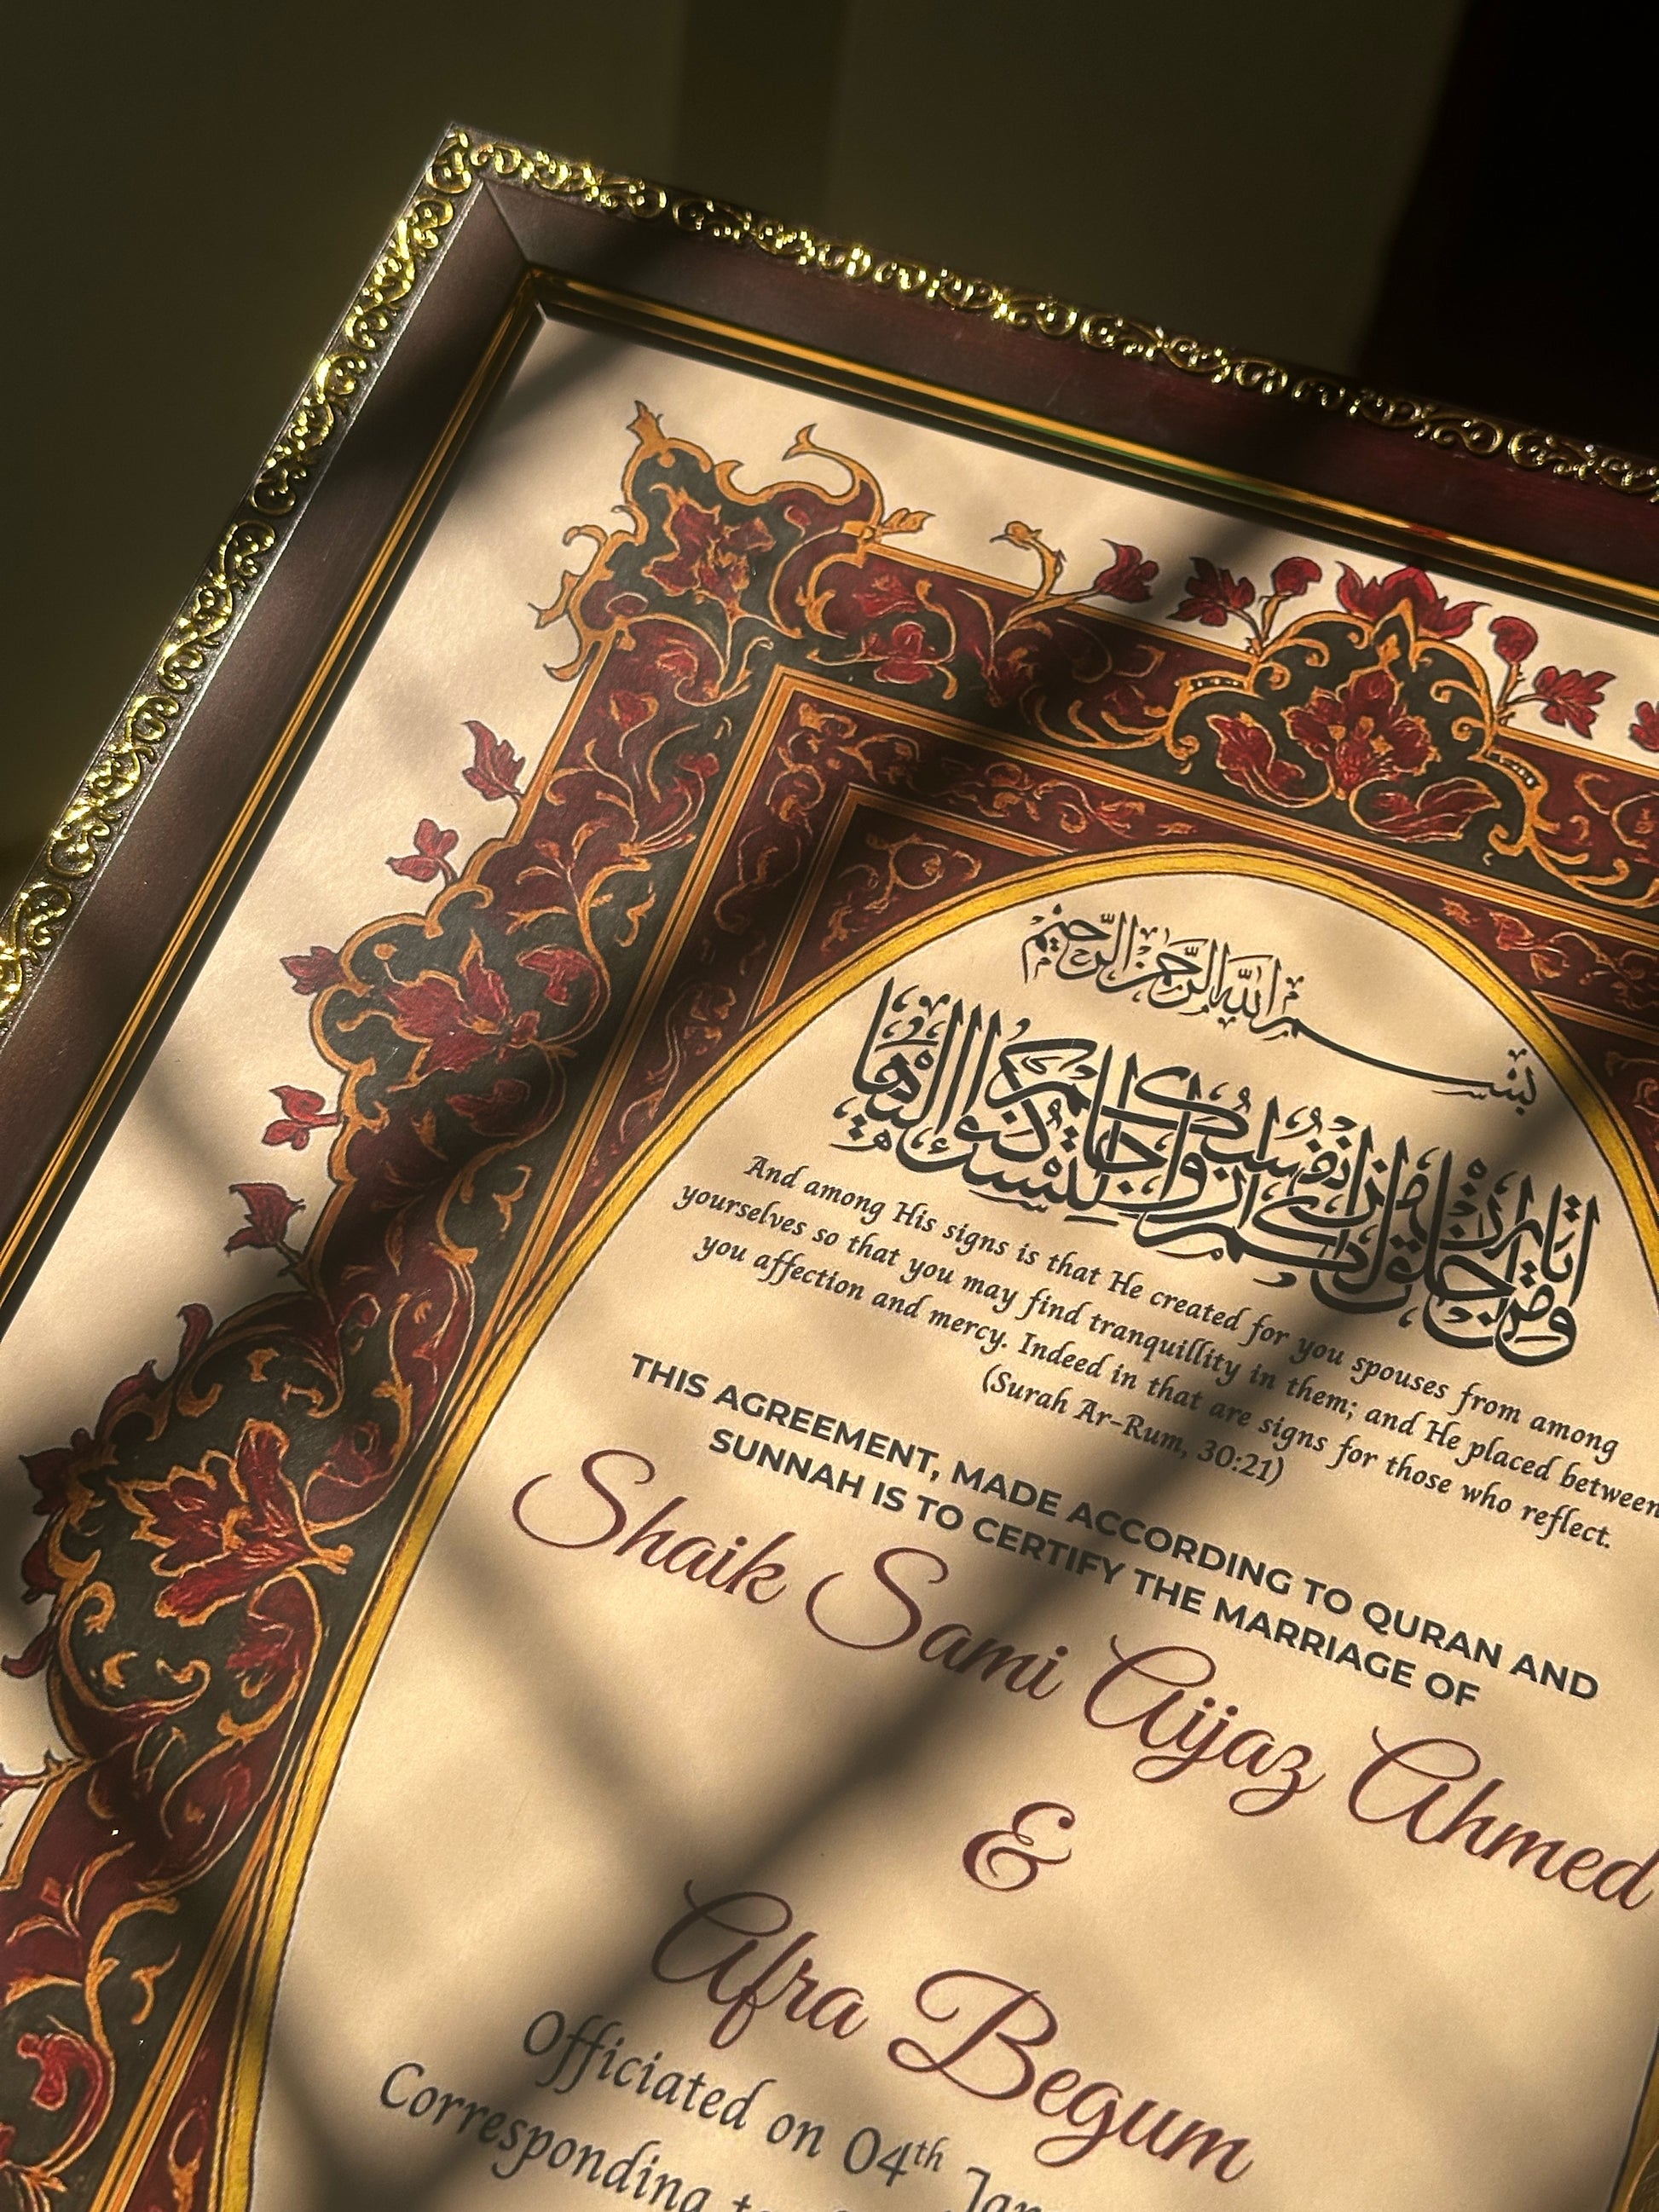 بسم الله الرحمن الرحيم
ومن آياته أن خلق لكم من أنفسكم أزواجا لتسكنوا إليها
And among His signs is that He created for you spouses from among
yourselves so that you may find tranquillity in them; and He placed between
you affection and mercy. Indeed in that are signs for those who reflect.
(Surah Ar-Rum, 30:21)
THIS AGREEMENT, MADE ACCORDING TO QURAN AND
SUNNAH IS TO CERTIFY THE MARRIAGE OF
Shaik Sami Aijaz Ahmed
&
Afra Begum
Officiated on 04th Jan
Corresponding